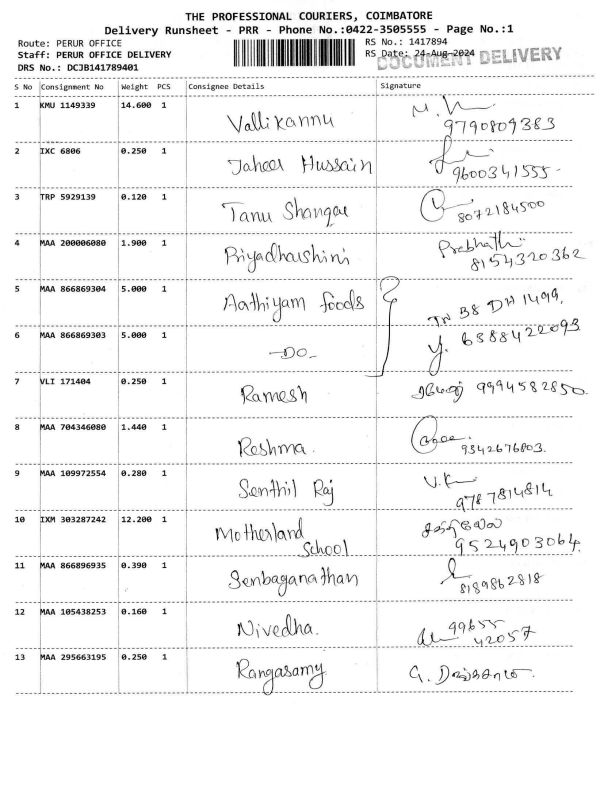 THE PROFESSIONAL COURIERS, COIMBATORE
Delivery Runsheet - PRR - Phone No.:0422-3505555 - Page No.:1
Route: PERUR OFFICE RS No.: 1417894
Staff: PERUR OFFICE DELIVERY RS Date: 24-Aug-2024 DOCUMENT DELIVERY
DRS No.: DCJB141789401
S No Consignment No Weight PCS Consignee Details Signature
1 KMU 1149339 14.600 1 Vallikannu
9790809383
2 IXC 6806 0.250 1 Jaheer Hussain
9600341555
3 TRP 5929139 0.120 1 Tanu Shangar
8072184500
4 MAA 200006080 1.900 1 Priyadharshini Prabhathi
8154320362
5 MAA 866869304 5.000 1 Aathiyam foods TN 38 DH 1499,
6 MAA 866869303 5.000 1 -DO- y. 6388422093
7 VLI 171404 0.250 1 Ramesh ரமேஷ் 9994582850
8 MAA 704346080 1.440 1 Reshma.
9342676803.
9 MAA 109972554 0.280 1 Senthil Raj V.K
9787814814
10 IXM 303287242 12.200 1 Motherland School
9524903064.
11 MAA 866896935 0.390 1 Senbaganathan
8189862818
12 MAA 105438253 0.160 1 Nivedha. 99655
42057
13 MAA 295663195 0.250 1 Rangasamy